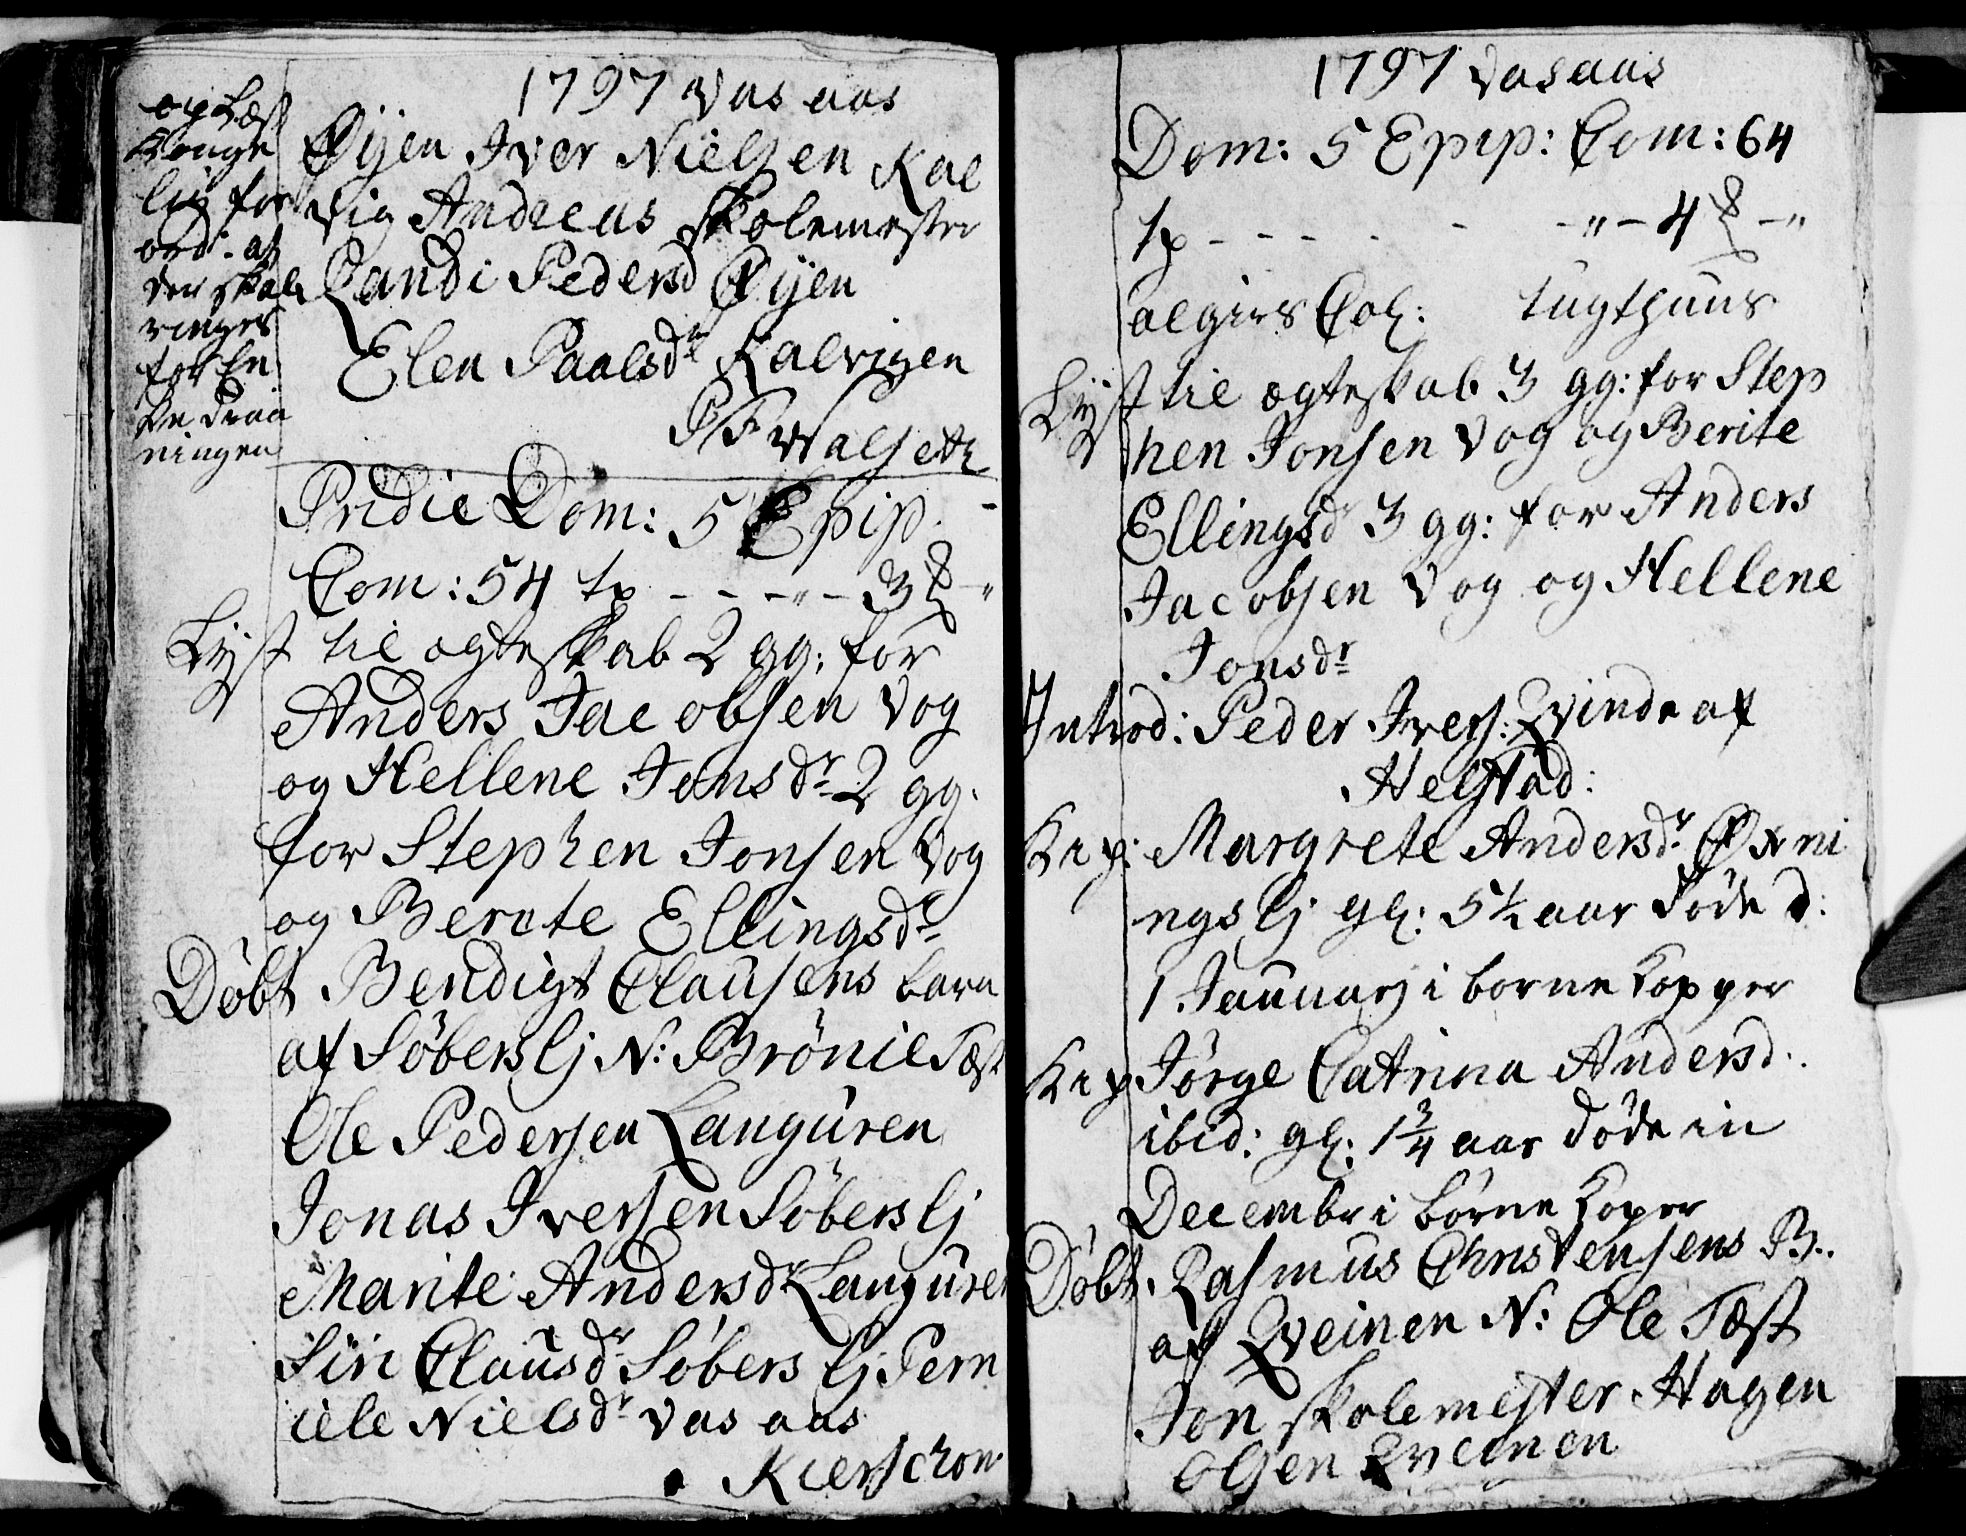 1797 Vas aas
op Læst
Konge
lig for
ord: at
der skal
ringes
for En
de Draa
ningen
Øijen Iver Nielsen Kal
vig Andreas Skolemester
Randi Pedersd Øijen
Elen Paalsdr Kalvigen
P F Walseth
Pridie Dom: 5 Epip.
Com: 54 tp - - - " - 3 β - "
Lyst til egteskab 2 gg: for
Anders Jacobsen Vog
og Hellene Jonsdr 2 gg.
for Stephen Jonsen Vog
og Berete Ellingsdr
Døbt Bendigt Clausens barn
af Søbersli N: Brønil Test
Ole Pedersen Languren
Jonas Iversen Søbersli
Marite Andersdr Languren
Siri Clausdr Søbers li Pern
ille Nielsdr Vas aas
Kierschow
1797 Vasaas
Dom: 5 Epip: Com: 64
tp - - - - - - " - 4 β - "
Tugthuus
Lyst til ægteskab 3 gg: for Step
hen Jonsen Vog og Berite
Ellingsd 3 gg: for Anders
Jacobsen Vog og Hellene
Jonsdr
Introd: Peder Ivers: Qvinde af
Helstad:
Margrete Andersdr Øxni
ngs li gl: 5½ aar døde d:
1 Januarj i borne Kopper
Jørge Catrina Andersd.
ibid: gl: 1¾ aar døde in
Decembr i børne Koper
Døbt. Rasmus Christensens B..
af Qveinen N: Ole Test
Jon Skolemester Hagen
Olsen Qveinen